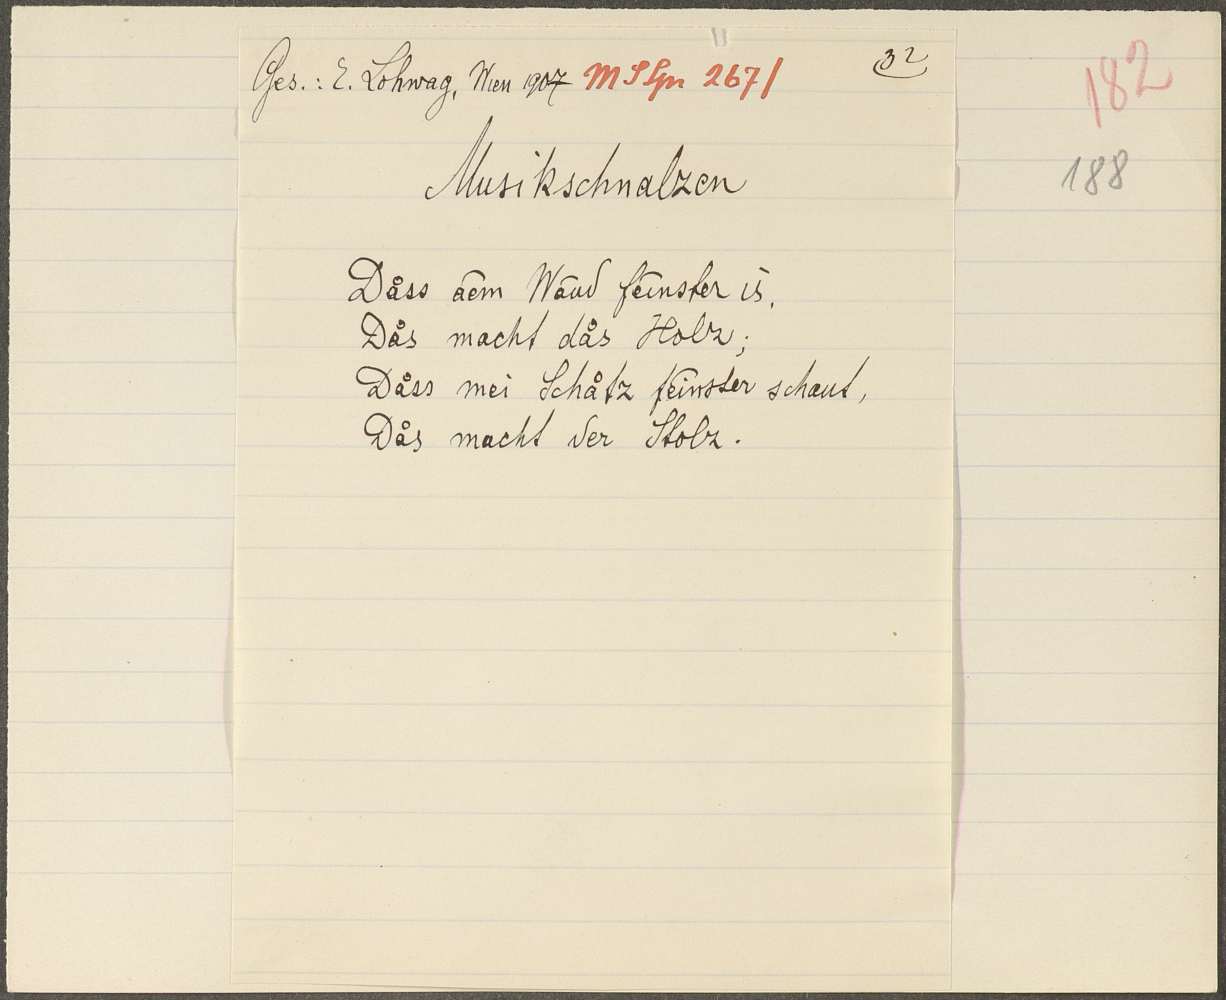 Ges.: E. Lohwag, Wien 1907 MS Spr 267/ 32
182
188
Musikschnalzen
Dåss äem Wåud feinster is,
Dås macht dås Holz;
Dåss mei Schåtz feinster schaut,
Dås macht der Stolz.